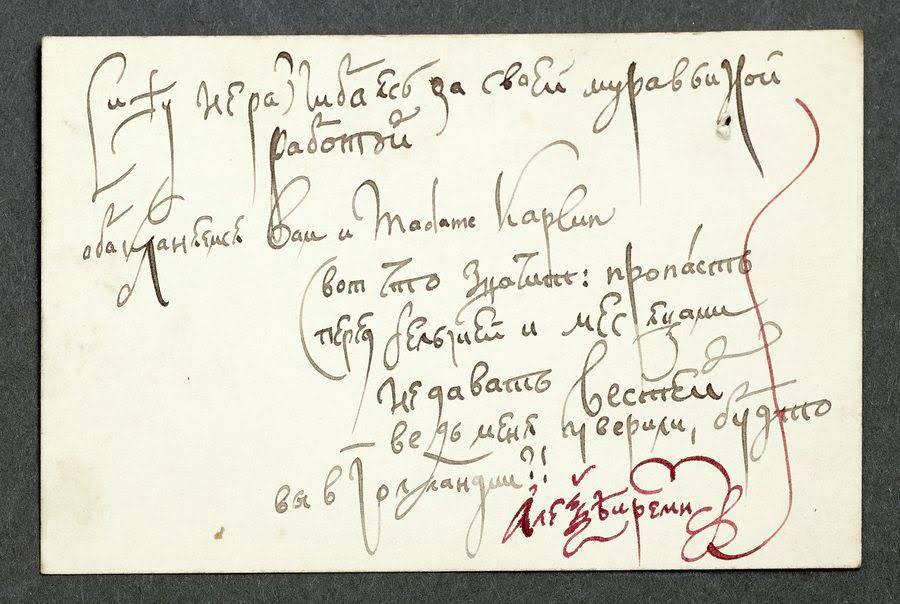 Сижу не разгибаясь за своей муравьиной
работой
оба кланяемся Вам и Madame Kaplun
(вот что значит: пропасть
перед и месяцами
не давать вестей
ведь меня уверили, будто
вы в Голландии?!
Алексей Ремизов